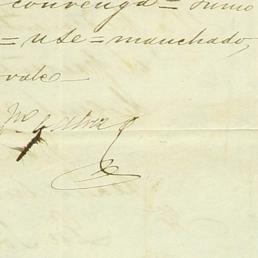 convenga = Sumo
= use = manchado,
vale